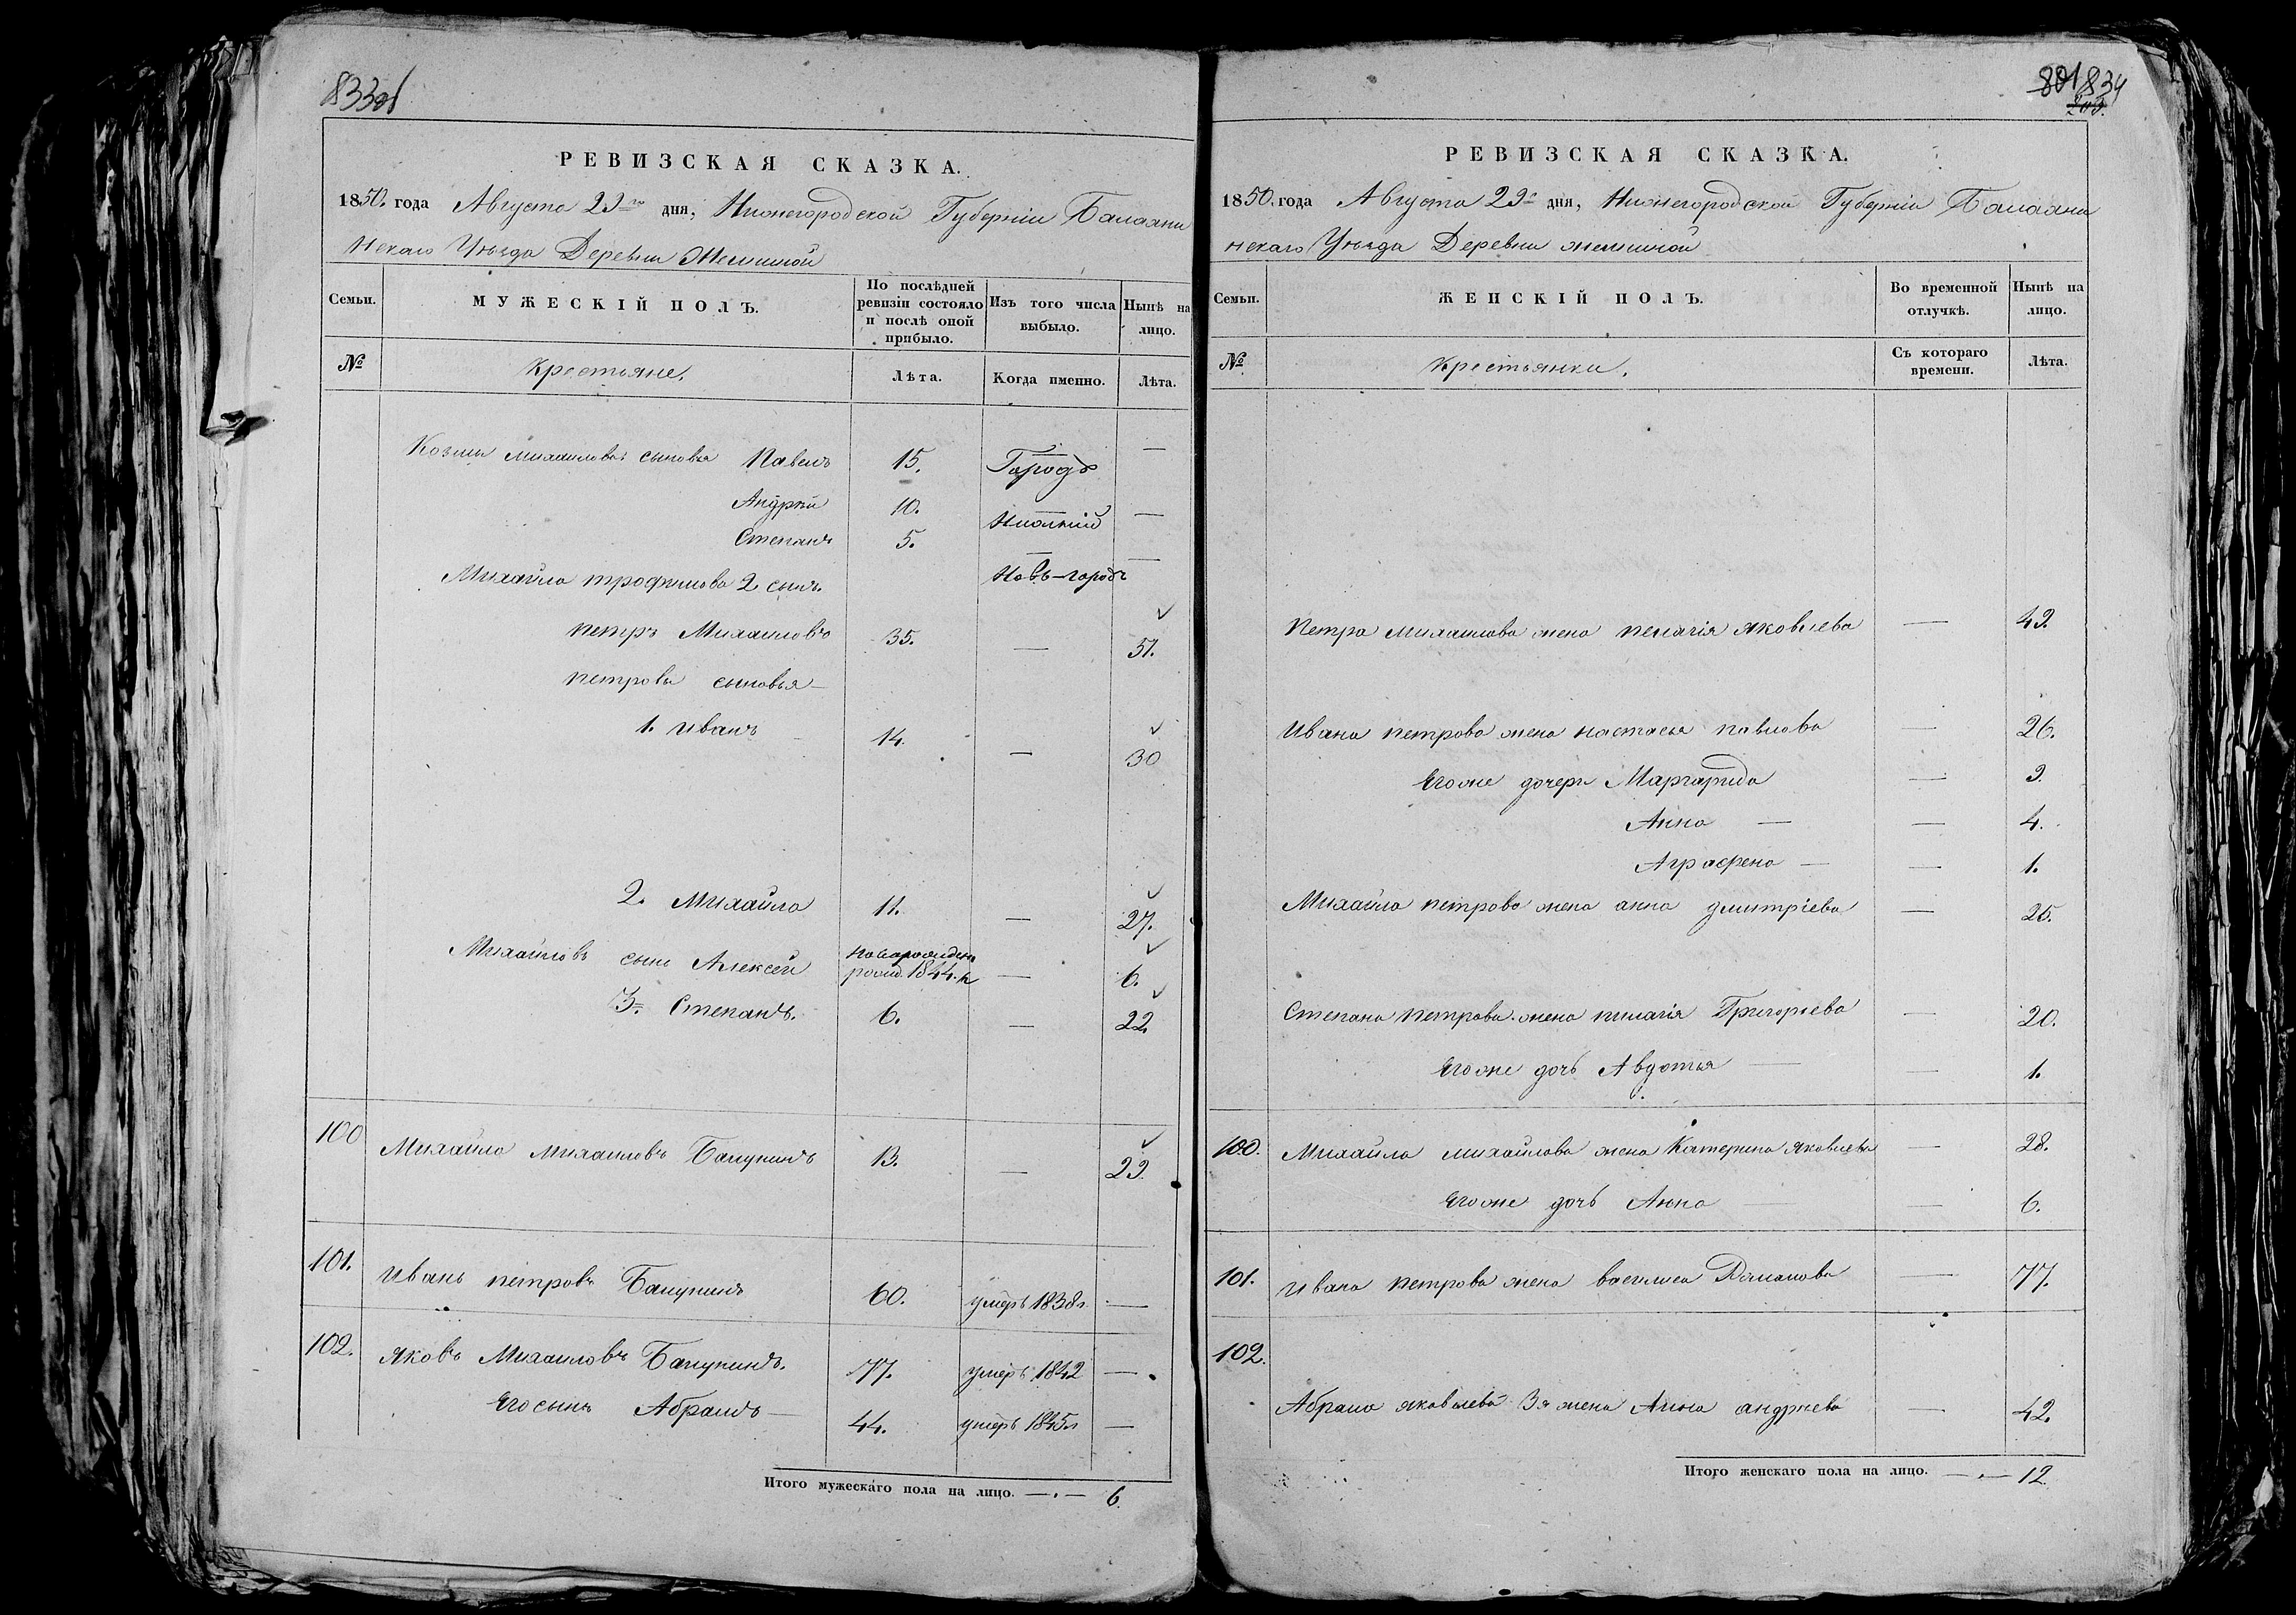 833об
РЕВИЗСКАЯ СКАЗКА.
1850. года Августа 29го дня, Нижегородской Губерніи Балахни
нскаго Уѣзда Деревни
Семьи.
МУЖЕСКІЙ ПОЛЪ.
По послѣдней ревизіи состояло и послѣ оной прибыло.
Изъ того числа выбыло.
Нынѣ на лицо.
№
Крестьяне.
Лѣта.
Когда именно.
Лѣта.
Козмы Михаилова сыновья Павелъ 15. Городъ —
Андрѣй 10. Нижній —
Степанъ 5. —
Михайла трофимова 2 сынъ. Новъ-городъ
петръ Михаиловъ 35. — 51.
петровы сыновья
1. Иванъ 14. — 30
2. Михайла 11. — 27.
Михайловъ сынъ Алексѣй рожд. 1844. — 6.
3. Степанъ. 6. — 22.
100 Михайло Михаиловъ Бачунинъ 13. — 29.
101. Иванъ петровъ Бачунинъ 60. умеръ 1838г. —
102. Яковъ Михаиловъ Бачунинъ. 77. умеръ 1842 —
Его сынъ Абрамъ 44. умеръ 1845г —
Итого мужескаго пола на лицо. 6.
801 834
203.
РЕВИЗСКАЯ СКАЗКА.
1850. года Августа 29го дня, Нижегородской Губерніи Балахни
нскаго Уѣзда Деревни
Семьи.
ЖЕНСКІЙ ПОЛЪ.
Во временной отлучкѣ.
Нынѣ на лицо.
№
Крестьянки.
Съ котораго времени.
Лѣта.
Петра михаилова жена пелагія яковлева — 49.
Ивана петрова жена настасья павлова — 26.
Его же дочери Маргарида — 9.
Анна — 4.
Аграфена — 1.
Михайла петрова жена анна дмитріева — 25.
Степана петрова жена пилагія Григорьева — 20.
Его же дочь Авдотья — 1.
100. Михайла михайлова жена Катерина яковлева — 28.
Его же дочь Анна — 6.
101. Ивана петрова жена василиса Романова — 77.
102.
Абрама яковлева 3я жена Анна андреева — 42.
Итого женскаго пола на лицо. 12.